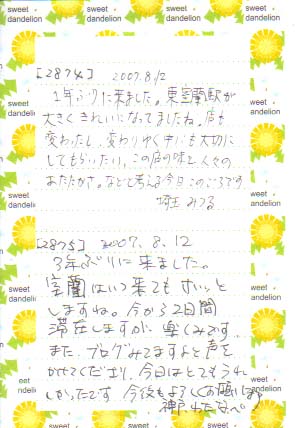 sweet dandelion
[2874] 2007.8.12
1年ぶりに来ました。東室蘭駅が
大きくきれいになってましたね。店も
変わったし、変わりゆく中にも大切に
してもらいたい。この店の味と人々の
あたたかさ。などと考える今日このごろです
埼玉 みつる
[2875] 2007.8.12
3年ぶりに来ました。
室蘭はいつ来てもほっと
しますね。今から2日間
滞在しますが、楽しみです
また、ブログみてますよと声を
かけてくださり、今日はとてもうれ
しかったです。今後もよろしくお願いします。
神戸